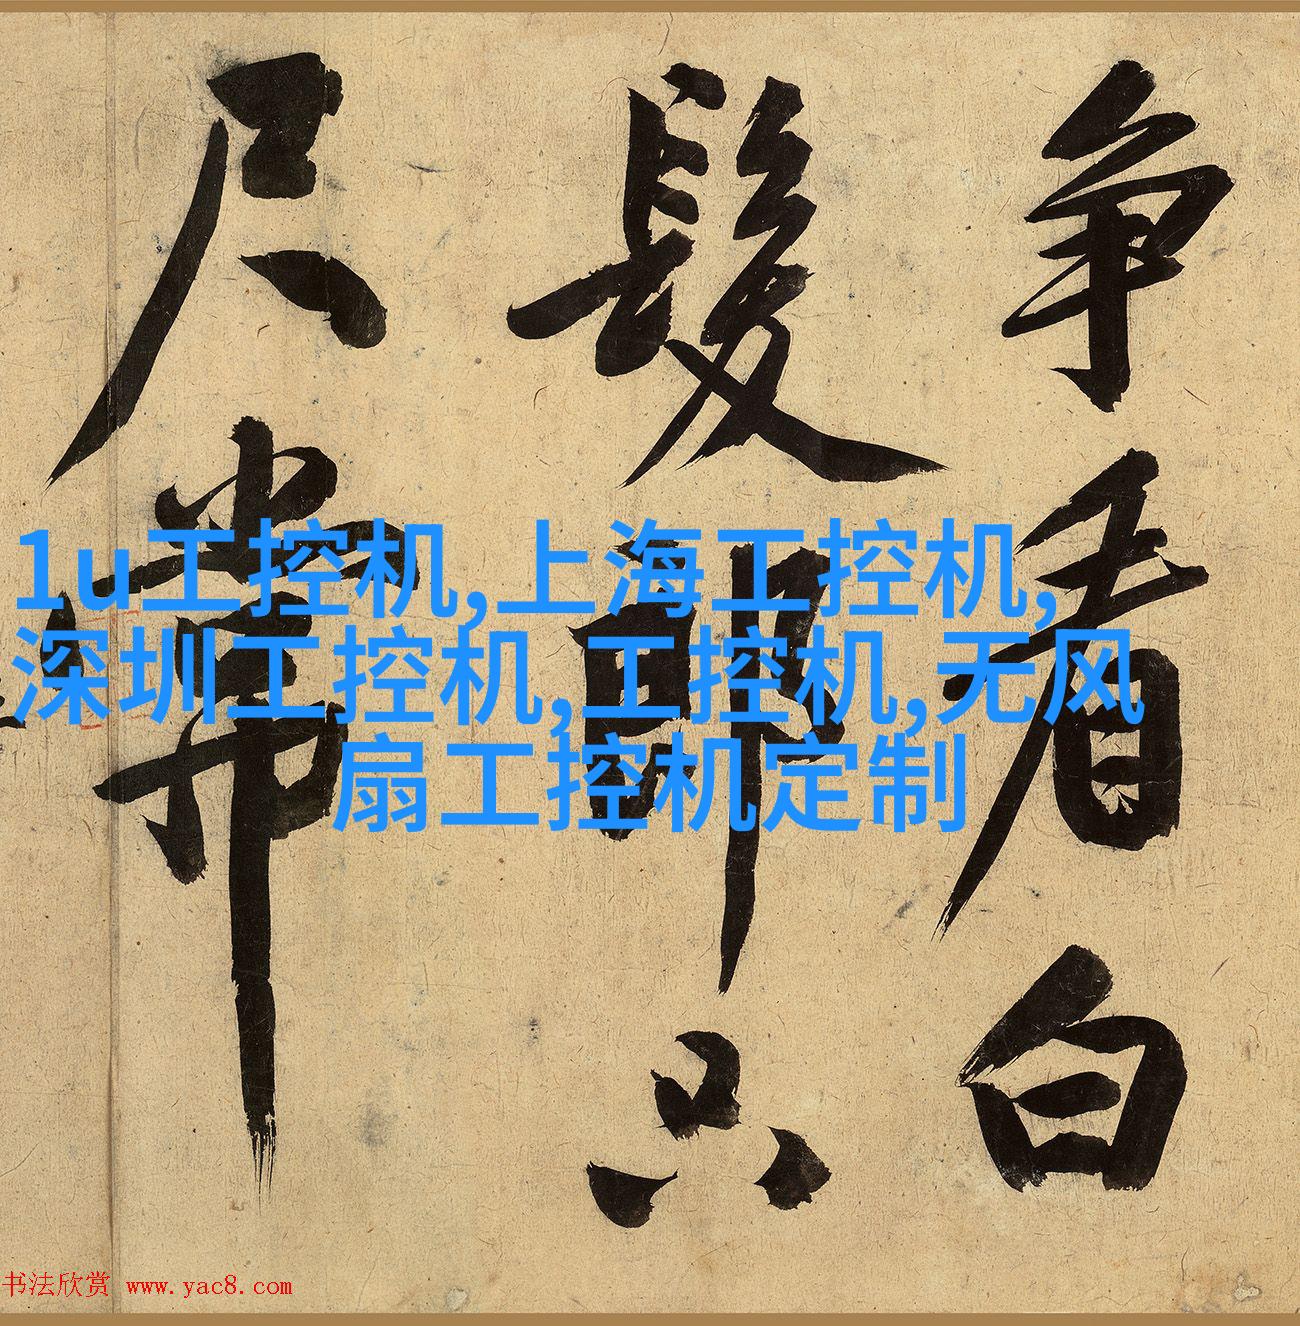 争看白
髮郎只
尺常
1u工控机,上海工控机,
深圳工控机,工控机,无风
扇工控机定制
书法欣赏 www.yac8.com